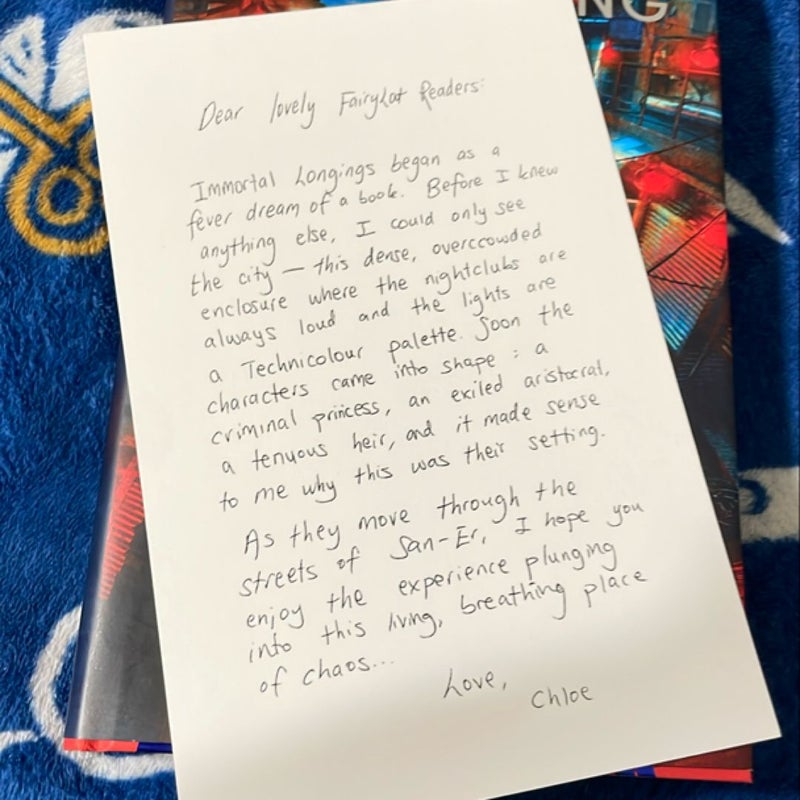 NG
Dear lovely FairyLot Readers:
Immortal Longings began as a
fever dream of a book. Before I knew
anything else, I could only see
the city — this dense, overcrowded
enclosure where the nightclubs are
always loud and the lights are
a Technicolour palette. Soon the
characters came into shape : a
criminal princess, an exiled aristocrat,
a tenuous heir, and it made sense
to me why this was their setting.
As they move through the
streets of San-Er, I hope you
enjoy the experience plunging
into this living, breathing place
of chaos...
Love,
Chloe